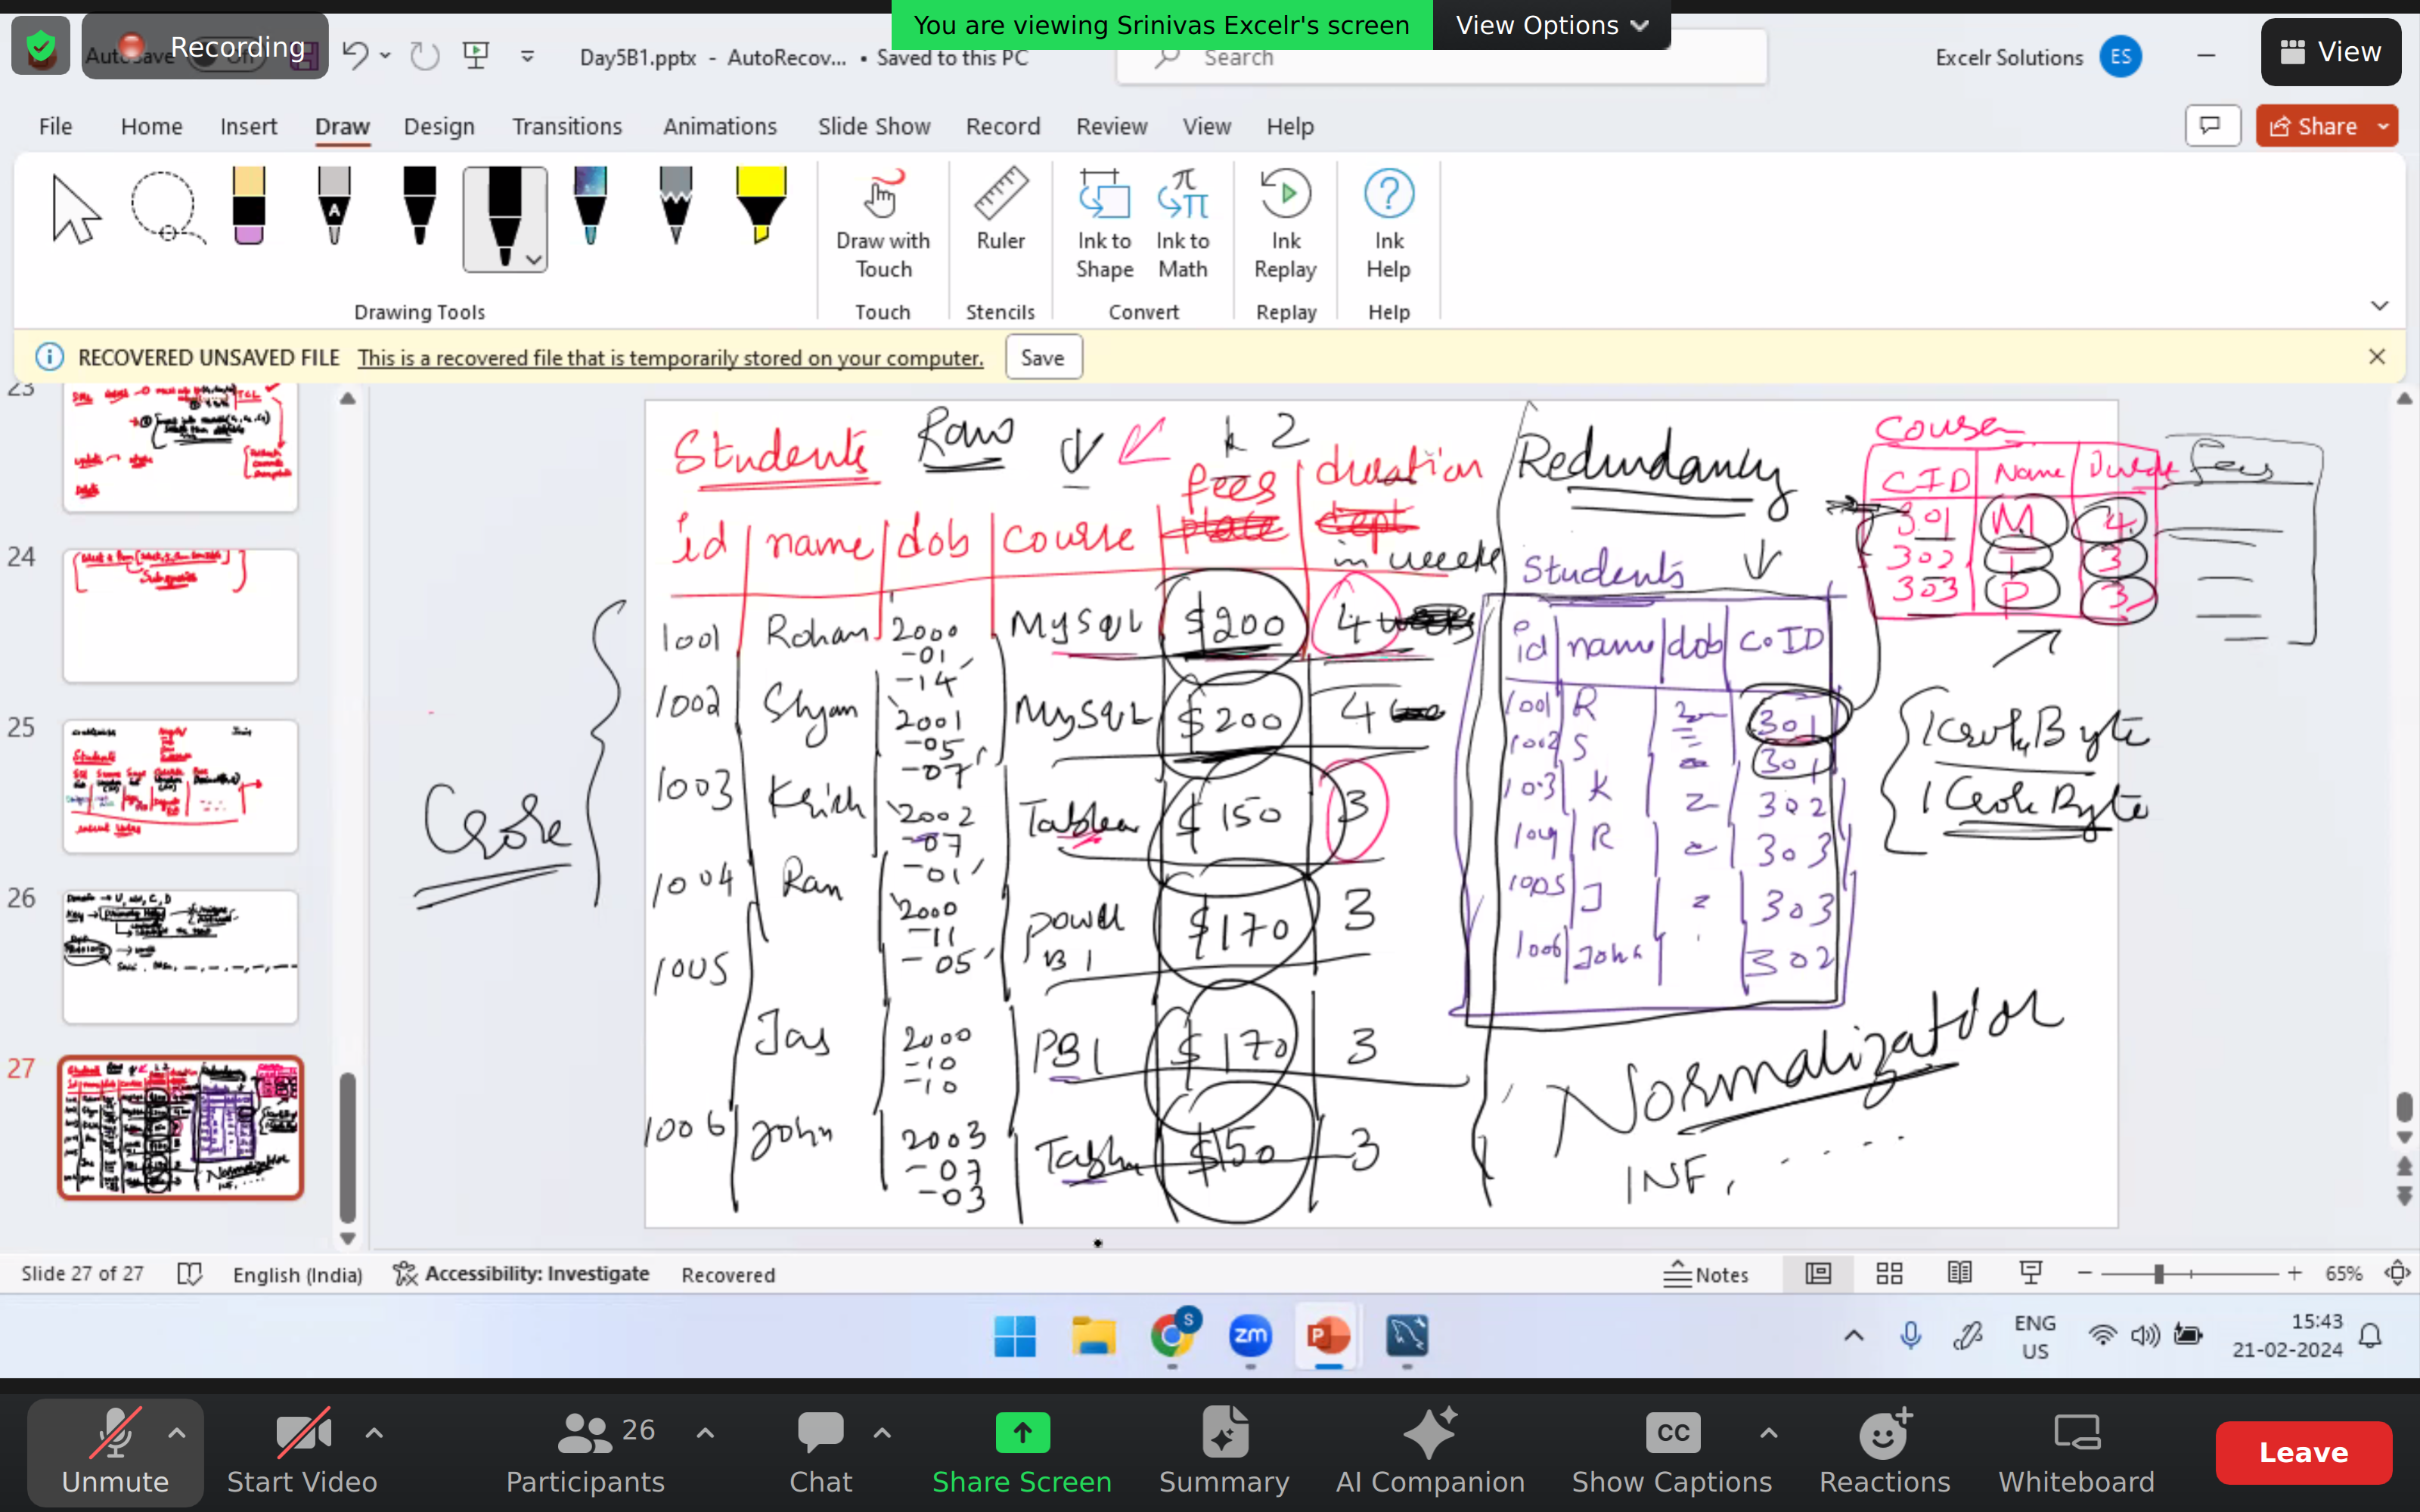 You are viewing Srinivas Excelr's screen
View Options
Recording
AutoSave
On
Day5B1.pptx - AutoRecov... • Saved to this PC
Search
Excelr Solutions
ES
View
File Home Insert Draw Design Transitions Animations Slide Show Record Review View Help
Share
Draw with Touch
Ruler
Ink to Shape
Ink to Math
Ink Replay
Ink Help
Drawing Tools
Touch
Stencils
Convert
Replay
Help
RECOVERED UNSAVED FILE This is a recovered file that is temporarily stored on your computer. Save
23
24
25
26
27
Students Raw
2
id name dob course fees duration
in weeks
1001 Rohan 2000-01-14 MySQL $200 4
1002 Shyam 2001-05-07 MySQL $200 4
1003 Krich 2002-07-01 Tableau $150 3
1004 Ram 2000-11-05 Power BI $170 3
1005 Jas 2000-10-10 PBI $170 3
1006 John 2003-07-03 3
$150
Crore
Redundancy
Students
id name dob CoID
1001 R 301
1002 S 301
1003 K 302
1004 R 303
1005 J 303
1006 John 302
Course
CID Name
Fees
301 M 4
302 T 3
303 P 3
1 Byte
1 Crore Byte
Normalization
1NF, .....
Slide 27 of 27
English (India)
Accessibility: Investigate
Recovered
Notes
65%
S
zm
P
ENG
US
15:43
21-02-2024
Unmute
Start Video
26
Participants
Chat
Share Screen
Summary
AI Companion
CC
Show Captions
Reactions
Whiteboard
Leave